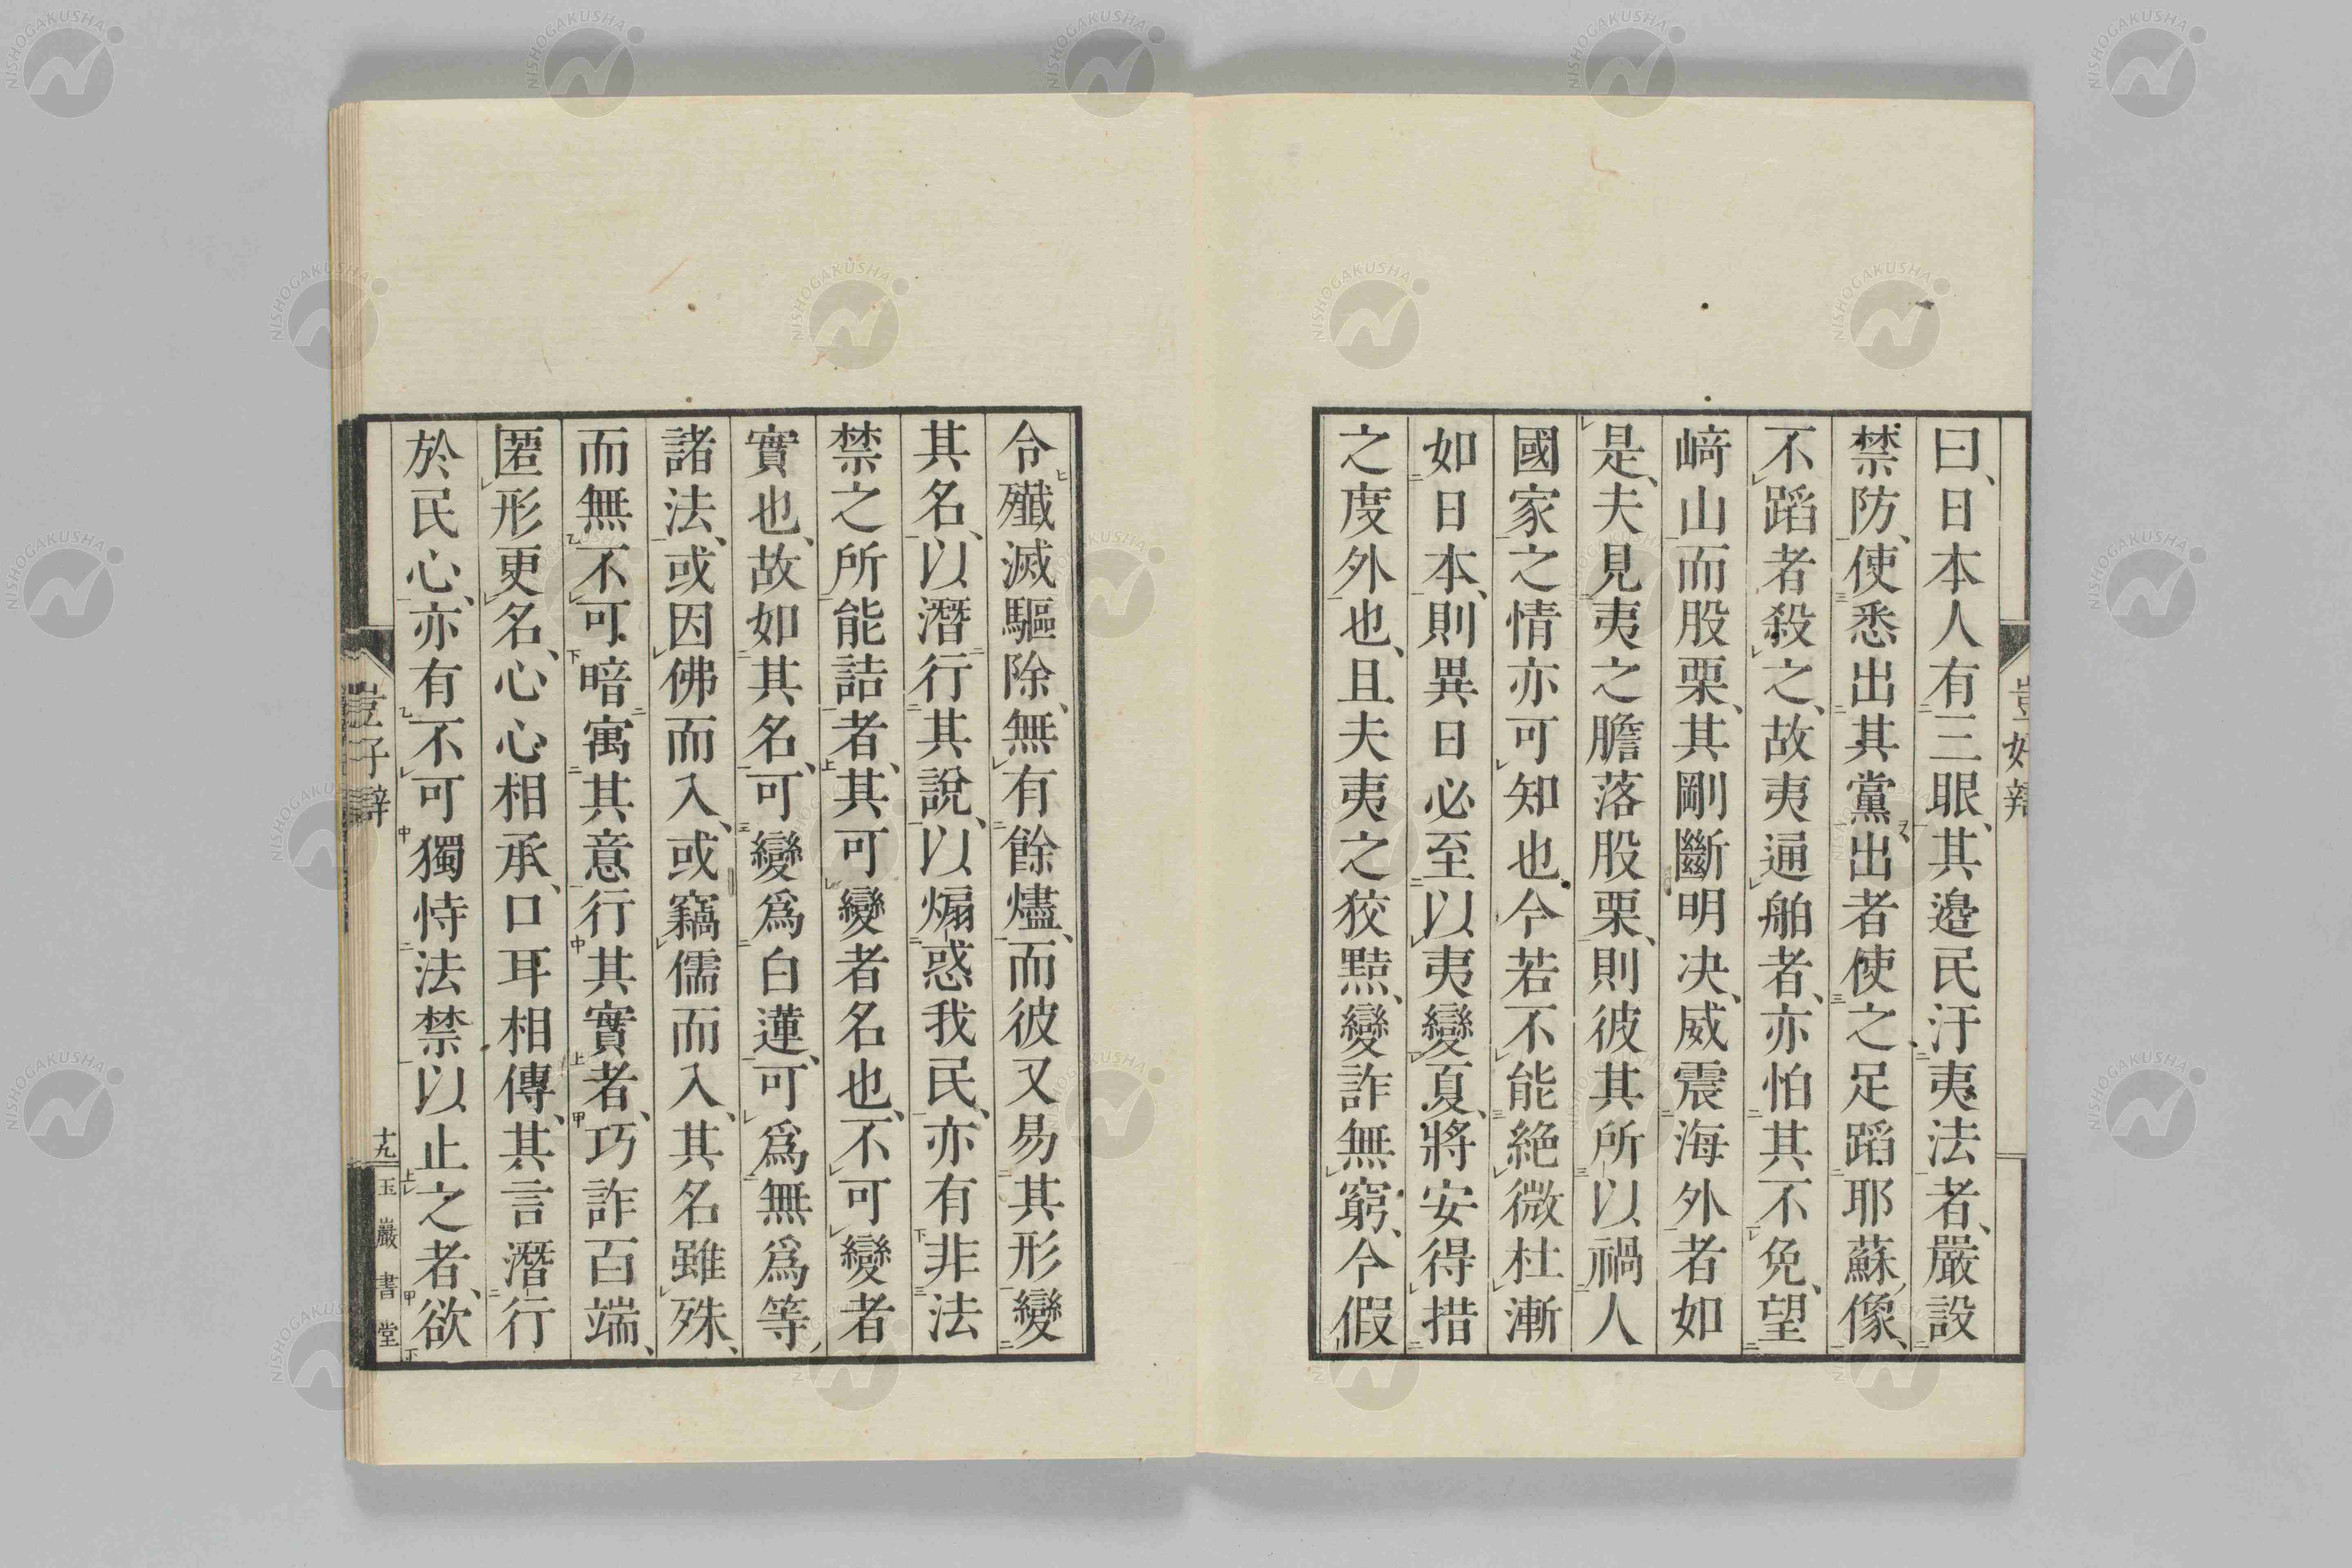 曰、日本人有三眼、其邉民汙夷法者、嚴設
禁防、使悉出其黨、出者使之、足蹈耶蘇像、
不蹈者殺之、故夷通舶者、亦怕其不免、望
﨑山而股栗、其剛斷明决、威震海外者如
是、夫見夷之膽落股栗、則彼其所以禍人
國家之情亦可知也、今若不能絶微杜漸
如日本、則異日必至以夷變夏、將安得措
之度外也、且夫夷之狡黠、變詐無窮、今假
令殲滅驅除、無有餘燼、而彼又易其形變
其名、以潛行其說、以煽惑我民、亦有非法
禁之所能詰者、其可變者名也、不可變者
實也、故如其名、可變爲白蓮、可爲無爲等、
諸法、或因佛而入、或竊儒而入、其名雖殊、
而無不可暗寓其意行其實者、巧詐百端、
匿形更名、心心相承、口耳相傳、其言潛行
於民心、亦有不可獨恃法禁以止之者、欲
十九
玉巖書堂